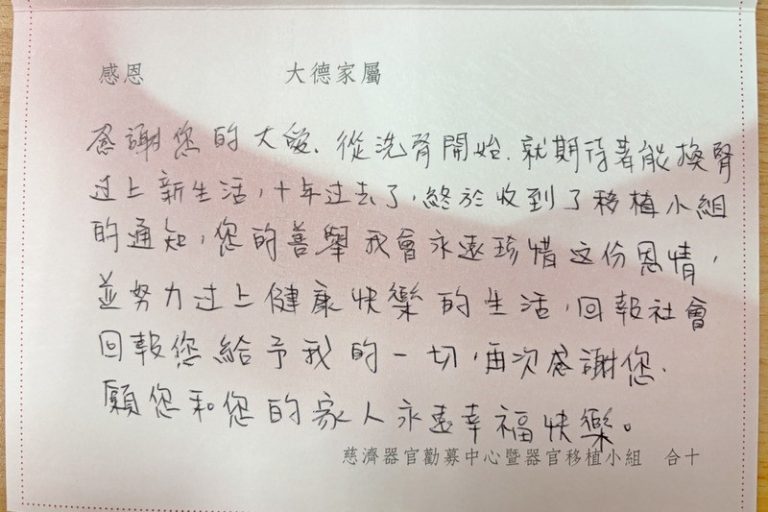 感恩 大德家屬
感謝您的大愛、從洗腎開始、就期待著能換腎
过上新生活，十年过去了，終於收到了移植小組
的通知，您的善舉我會永遠珍惜这份恩情，
並努力过上健康快樂的生活，回報社會
回報您給予我的一切，再次感謝您、
願您和您的家人永遠幸福快樂。
慈濟器官勸募中心暨器官移植小組 合十